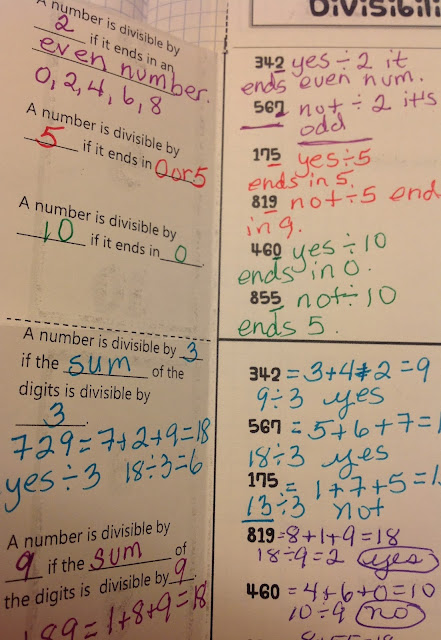 A number is divisible by
2 if it ends in an
even number.
0, 2, 4, 6, 8
A number is divisible by
5 if it ends in 0 or 5
A number is divisible by
10 if it ends in 0.
A number is divisible by 3
if the sum of the
digits is divisible by
3.
729 = 7+2+9=18
yes ÷ 3 18÷3=6
A number is divisible by
9 if the sum of
the digits is divisible by 9.
189 = 1+8+9=18
342 yes ÷ 2 it
ends even num.
567 not ÷ 2 it's
odd
175 yes ÷ 5
ends in 5.
819 not ÷ 5 end
in 9.
460 yes ÷ 10
ends in 0.
855 not ÷ 10
ends 5.
342 = 3+4+2=9
9÷3 yes
567 = 5+6+7=1
18÷3 yes
175 = 1+7+5=1
13÷3 not
819=8+1+9=18
18÷9=2 yes
460 = 4+6+0=10
10÷9 no